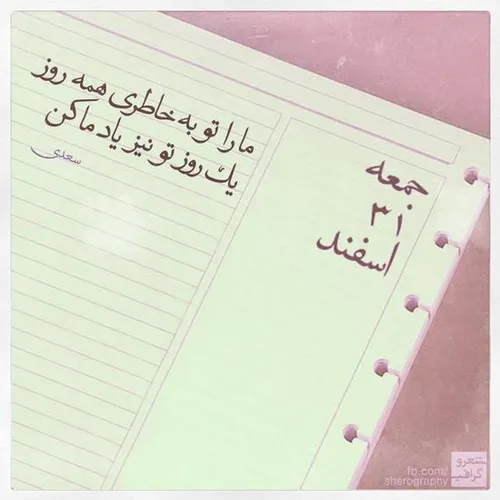 ما را تو به خاطری همه روز
یک روز تو نیز یاد ما کن
سعدی
جمعه
۳۱
اسفند
fb.com/
sherography
شعرو
گرافی